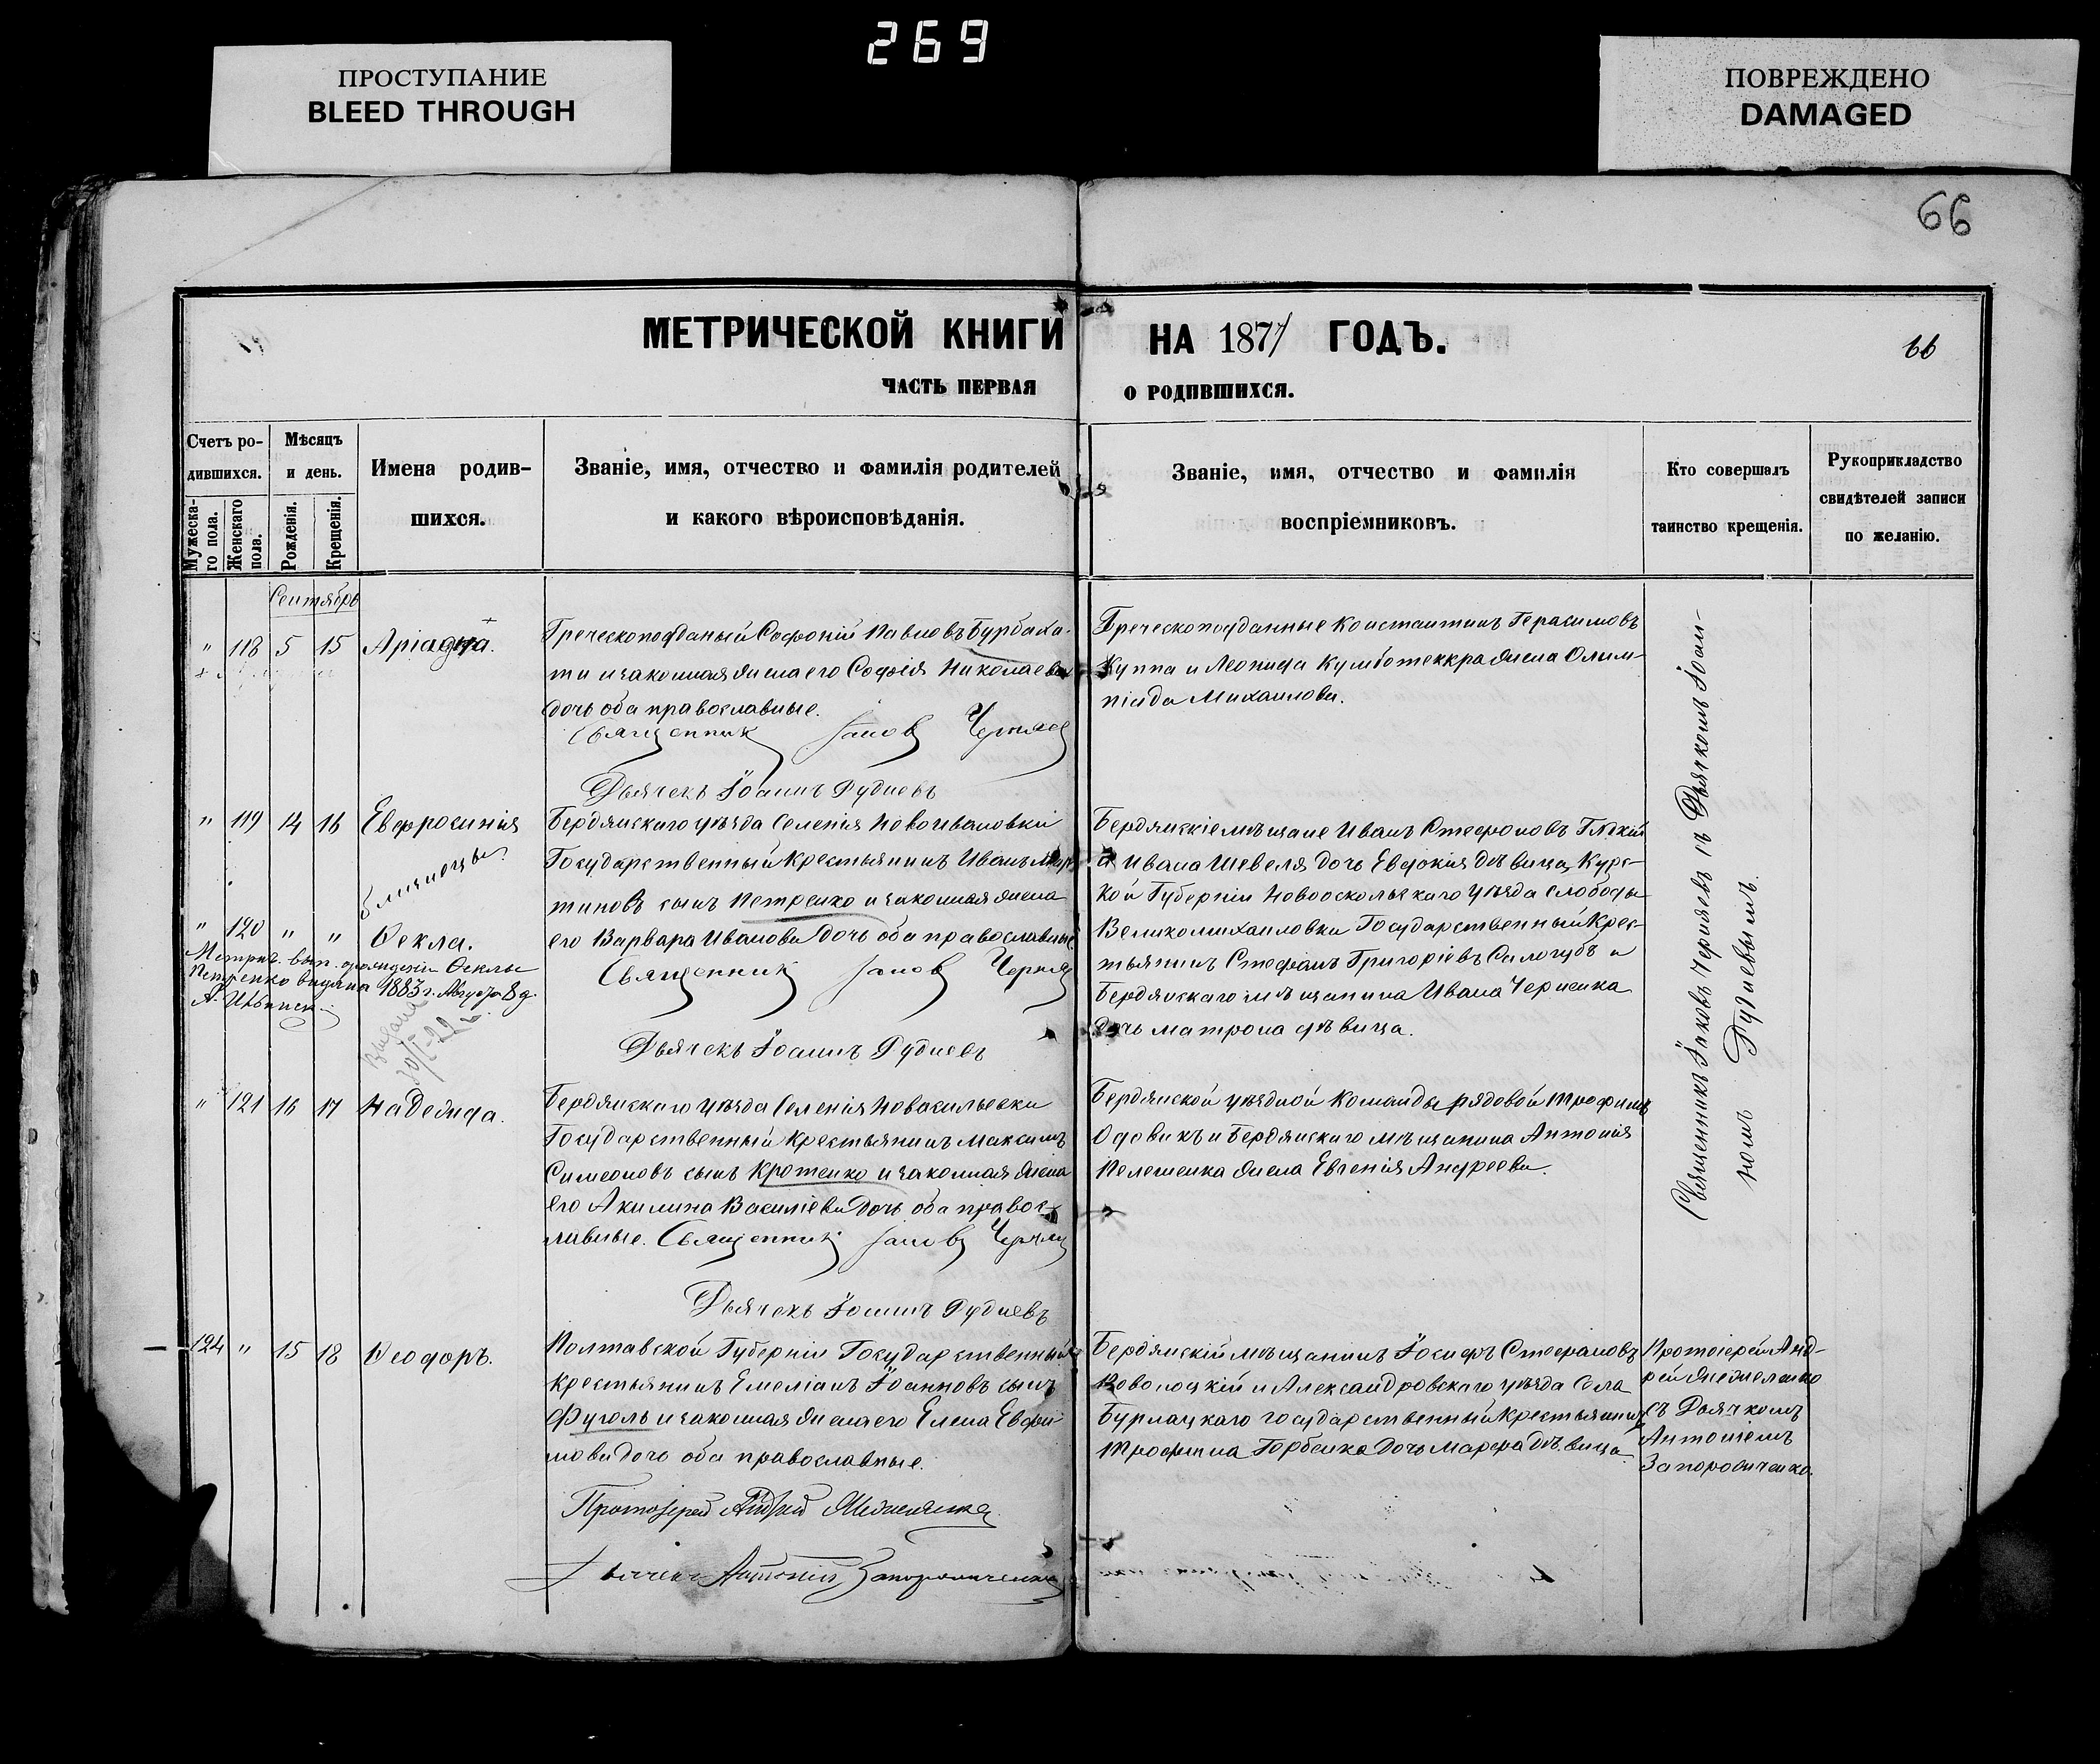 269
ПРОСТУПАНИЕ
BLEED THROUGH
ПОВРЕЖДЕНО
DAMAGED
66
МЕТРИЧЕСКОЙ КНИГИ НА 1877 ГОДЪ.
66
ЧАСТЬ ПЕРВАЯ О РОДИВШИХСЯ.
Счетъ ро-
дившихся.
Мужеска-
го пола.
Женскаго
пола.
Мѣсяцъ
и день.
Рожденія.
Крещенія.
Имена родив-
шихся.
Званіе, имя, отчество и фамилія родителей
и какого вѣроисповѣданія.
Званіе, имя, отчество и фамилія
воспріемниковъ.
Кто совершалъ
таинство крещенія.
Рукоприкладство
свидѣтелей записи
по желанію.
Сентябрь
" 118 5 15 Аріадна.
Греческоподданый Софроній Павловъ Бурбаха-
ти и законная жена его Софія Николаева
дочь оба православные.
Священник Іаков Черняев
Дьячекъ Іоаннъ Рудневъ
Греческоподданные Константинъ Герасимовъ
Куппа и Леонида жена Олим-
піада Михаилова.
" 119 14 16 Евфросинія
близнецы
" 120 " " Ѳекла.
Метрич. вып. о рождении Ѳеклы
Петренко выдана 1883 г. Августа 8 д.
Выдана
Бердянскаго уѣзда Селенія Новоивановки
Государственный крестьянинъ Иванъ Мар-
тиновъ сынъ Петренко и законная жена
его Варвара Иванова дочь оба православные
Священник Іаков Черняев
Дьячекъ Іоаннъ Рудневъ
Бердянскіе мѣщане Иванъ Стефановъ
и Ивана Шевеля дочь Евдокія дѣвица, Курс-
кой Губерніи Новооскольскаго уѣзда слободы
Великомихаиловки Государственный Крес-
тьянинъ Стефанъ Григоріевъ Силогубъ и
Бердянскаго мѣщанина Ивана Черненка
дочь Матрона дѣвица.
Священникъ Іаковъ Черняевъ съ Дьячкомъ Іоан-
номъ Рудневымъ.
" 121 16 17 Надежда.
Бердянскаго уѣзда Селенія Новасильевки
Государственный крестьянинъ Максимъ
Симеоновъ сынъ Кротенко и законная жена
его Акилина Василіева дочь оба правос-
лавные. Священник Іаков Черняев
Дьячекъ Іоаннъ Рудневъ
Бердянской уѣздной Команды рядовой Трофимъ
Одовикъ и Бердянскаго мѣщанина Антонія
Пелешенка жена Евгенія Андреева.
124 " 15 18 Ѳеодоръ.
Полтавской Губерніи Государственный
крестьянинъ Емеліанъ Іоанновъ сынъ
Фуголь и законная жена его Елена Евфи-
мова дочь оба православные.
Протоіерей Андрей
Дьячекъ Антоній Запорожченко
Бердянскій мѣщанинъ Іосифъ Стефановъ
и Александровскаго уѣзда Села
Бурлацкаго государственный Крестьянинъ
Трофима Горбенка дочь Марфа дѣвица
Протоіерей Анд-
рей
съ Дьячкомъ
Антоніемъ
Запорожченко.